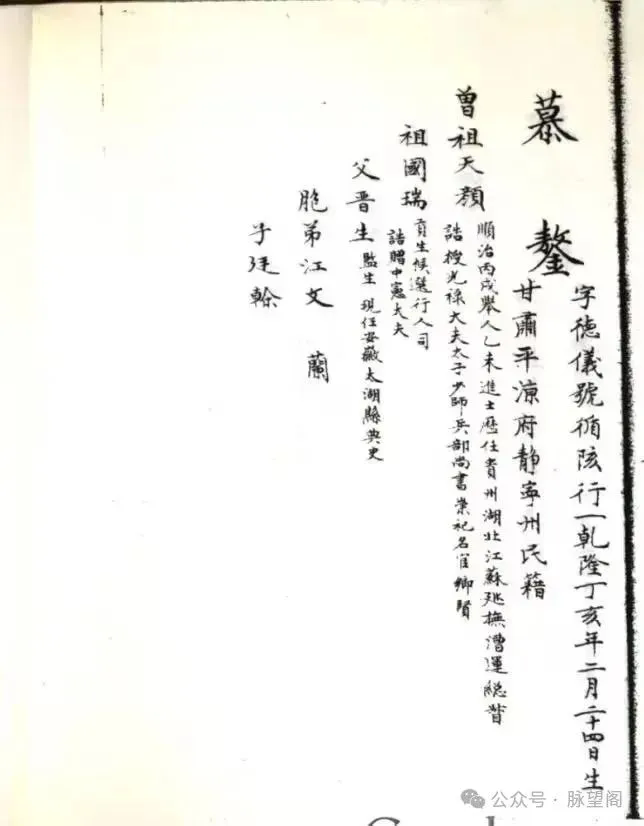 慕鏊
字德儀號循陔行一乾隆丁亥年二月二十四日生
甘肅平涼府靜寧州民籍
曾祖天顏
順治丙戌舉人乙未進士歷任貴州湖北江蘇廵撫漕運総督
誥授光祿大夫太子少師兵部尚書崇祀名宦鄉賢
祖國瑞
貢生候選行人司
誥贈中憲大夫
父晋生
監生 現任安徽太湖縣典史
胞弟江文 蘭
子廷榦
公众号·脉望阁